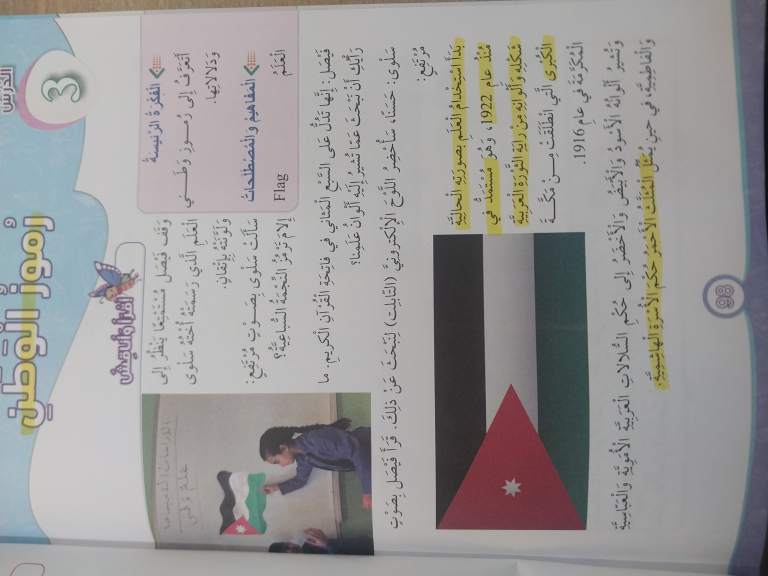 الدَّرْسُ
3
رُموزُ الْوَطَنِ
الْفِكْرَةُ الرَّئيسَةُ
أَتَعَرَّفُ إِلى رُموزِ وَطَني
وَدَلالاتِها.
الْمَفاهيمُ وَالْمُصْطَلَحاتُ
الْعَلَمُ
Flag
أَقْرَأُ وَأُناقِشُ
وَقَفَ فَيْصَل مُسْتَمْتِعًا يَنْظُرُ إِلى
الْعَلَمِ الَّذي رَسَمَتْهُ أُخْتُهُ سَلْوى
وَلَوَّنَتْهُ بِإِتْقانٍ.
سَأَلَتْ سَلْوى بِصَوْتٍ مُرْتَفِعٍ:
إِلامَ تَرْمُزُ النَّجْمَةُ السُّباعِيَّةُ؟
فَيْصَل: إِنَّها تَدُلُّ عَلى السَّبْعِ الْمَثاني في فاتِحَةِ الْقُرْآنِ الْكَريمِ. ما
رَأْيُكِ أَنْ نَبْحَثَ عَمّا تُشيرُ إِلَيْهِ أَلْوانُ عَلَمِنا؟
سَلْوى: حَسَنًا، سَأُحْضِرُ اللَّوْحَ الْإِلِكْترونِيَّ (التّابلِت) لِنَبْحَثَ عَنْ ذلِكَ. قَرَأَ فَيْصَل بِصَوْتٍ
مُرْتَفِعٍ:
بَدَأَ اسْتِخْدامُ الْعَلَمِ بِصورَتِهِ الْحالِيَّةِ
مُنْذُ عامِ 1922، وَهُوَ مُسْتَمَدٌّ في
شَكْلِهِ وَأَلْوانِهِ مِنْ رايَةِ الثَّوْرَةِ الْعَرَبِيَّةِ
الْكُبْرى الَّتي انْطَلَقَتْ مِنْ مَكَّةَ
الْمُكَرَّمَةِ في عامِ 1916.
وَتُشيرُ أَلْوانُهُ الْأَسْوَدُ وَالْأَبْيَضُ وَالْأَخْضَرُ إِلى حُكْمِ السُّلالاتِ الْعَرَبِيَّةِ الْأُمَوِيَّةِ وَالْعَبّاسِيَّةِ
وَالْفاطِمِيَّةِ، في حينِ يُمَثِّلُ الْمُثَلَّثُ الْأَحْمَرُ حُكْمَ الْأُسْرَةِ الْهاشِمِيَّةِ.
98